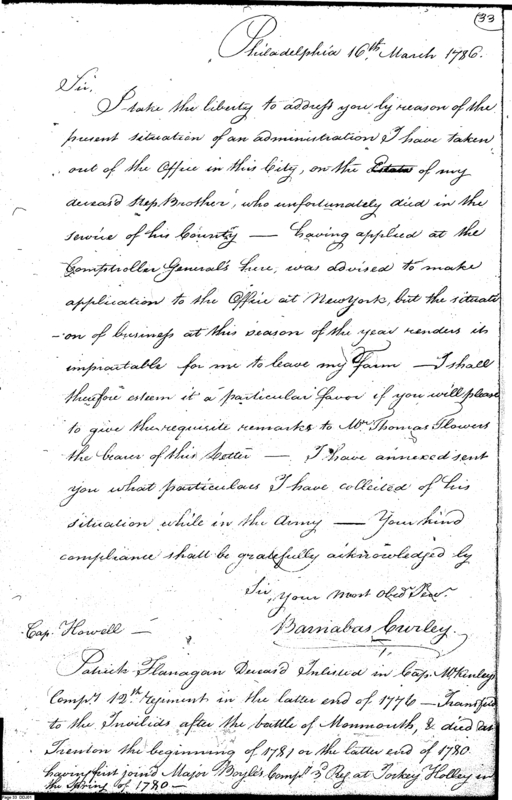 33
Philadelphia 16th March 1786.
Sir,
I take the liberty to address you by reason of the
present situation of an administration I have taken
out of the Office in this City, on the Estate of my
deceas'd Step Brother, who unfortunately died in the
service of his County — having applied at the
Comptroller General's here, was advised to make
application to the Office at New York, but the situati
-on of business at this season of the year renders its
impractable for me to leave my Farm — I shall
therefore esteem it a particular favor if you will please
to give the requisite remarks to Mr Thomas Flowers
the bearer of this Letter — I have annexed sent
you what particulars I have collected of his
situation while in the Army — Your kind
compliance shall be gratefully acknowledged by
Sir, your most Obedt Servt
Barnabas Curley.
Cap. Howell —
Patrick Flanagan Deceas'd Inlisted in Cap. McKinleys
Compy 12th regiment in the latter end of 1776 — Transfd
to the Invilids after the battle of Monmouth, & died at
Trenton the beginning of 1781 or the latter end of 1780
having first joined Major Boyle's Compy 3d Reg at Tockey Holley in
the Spring of 1780 —
Page 33